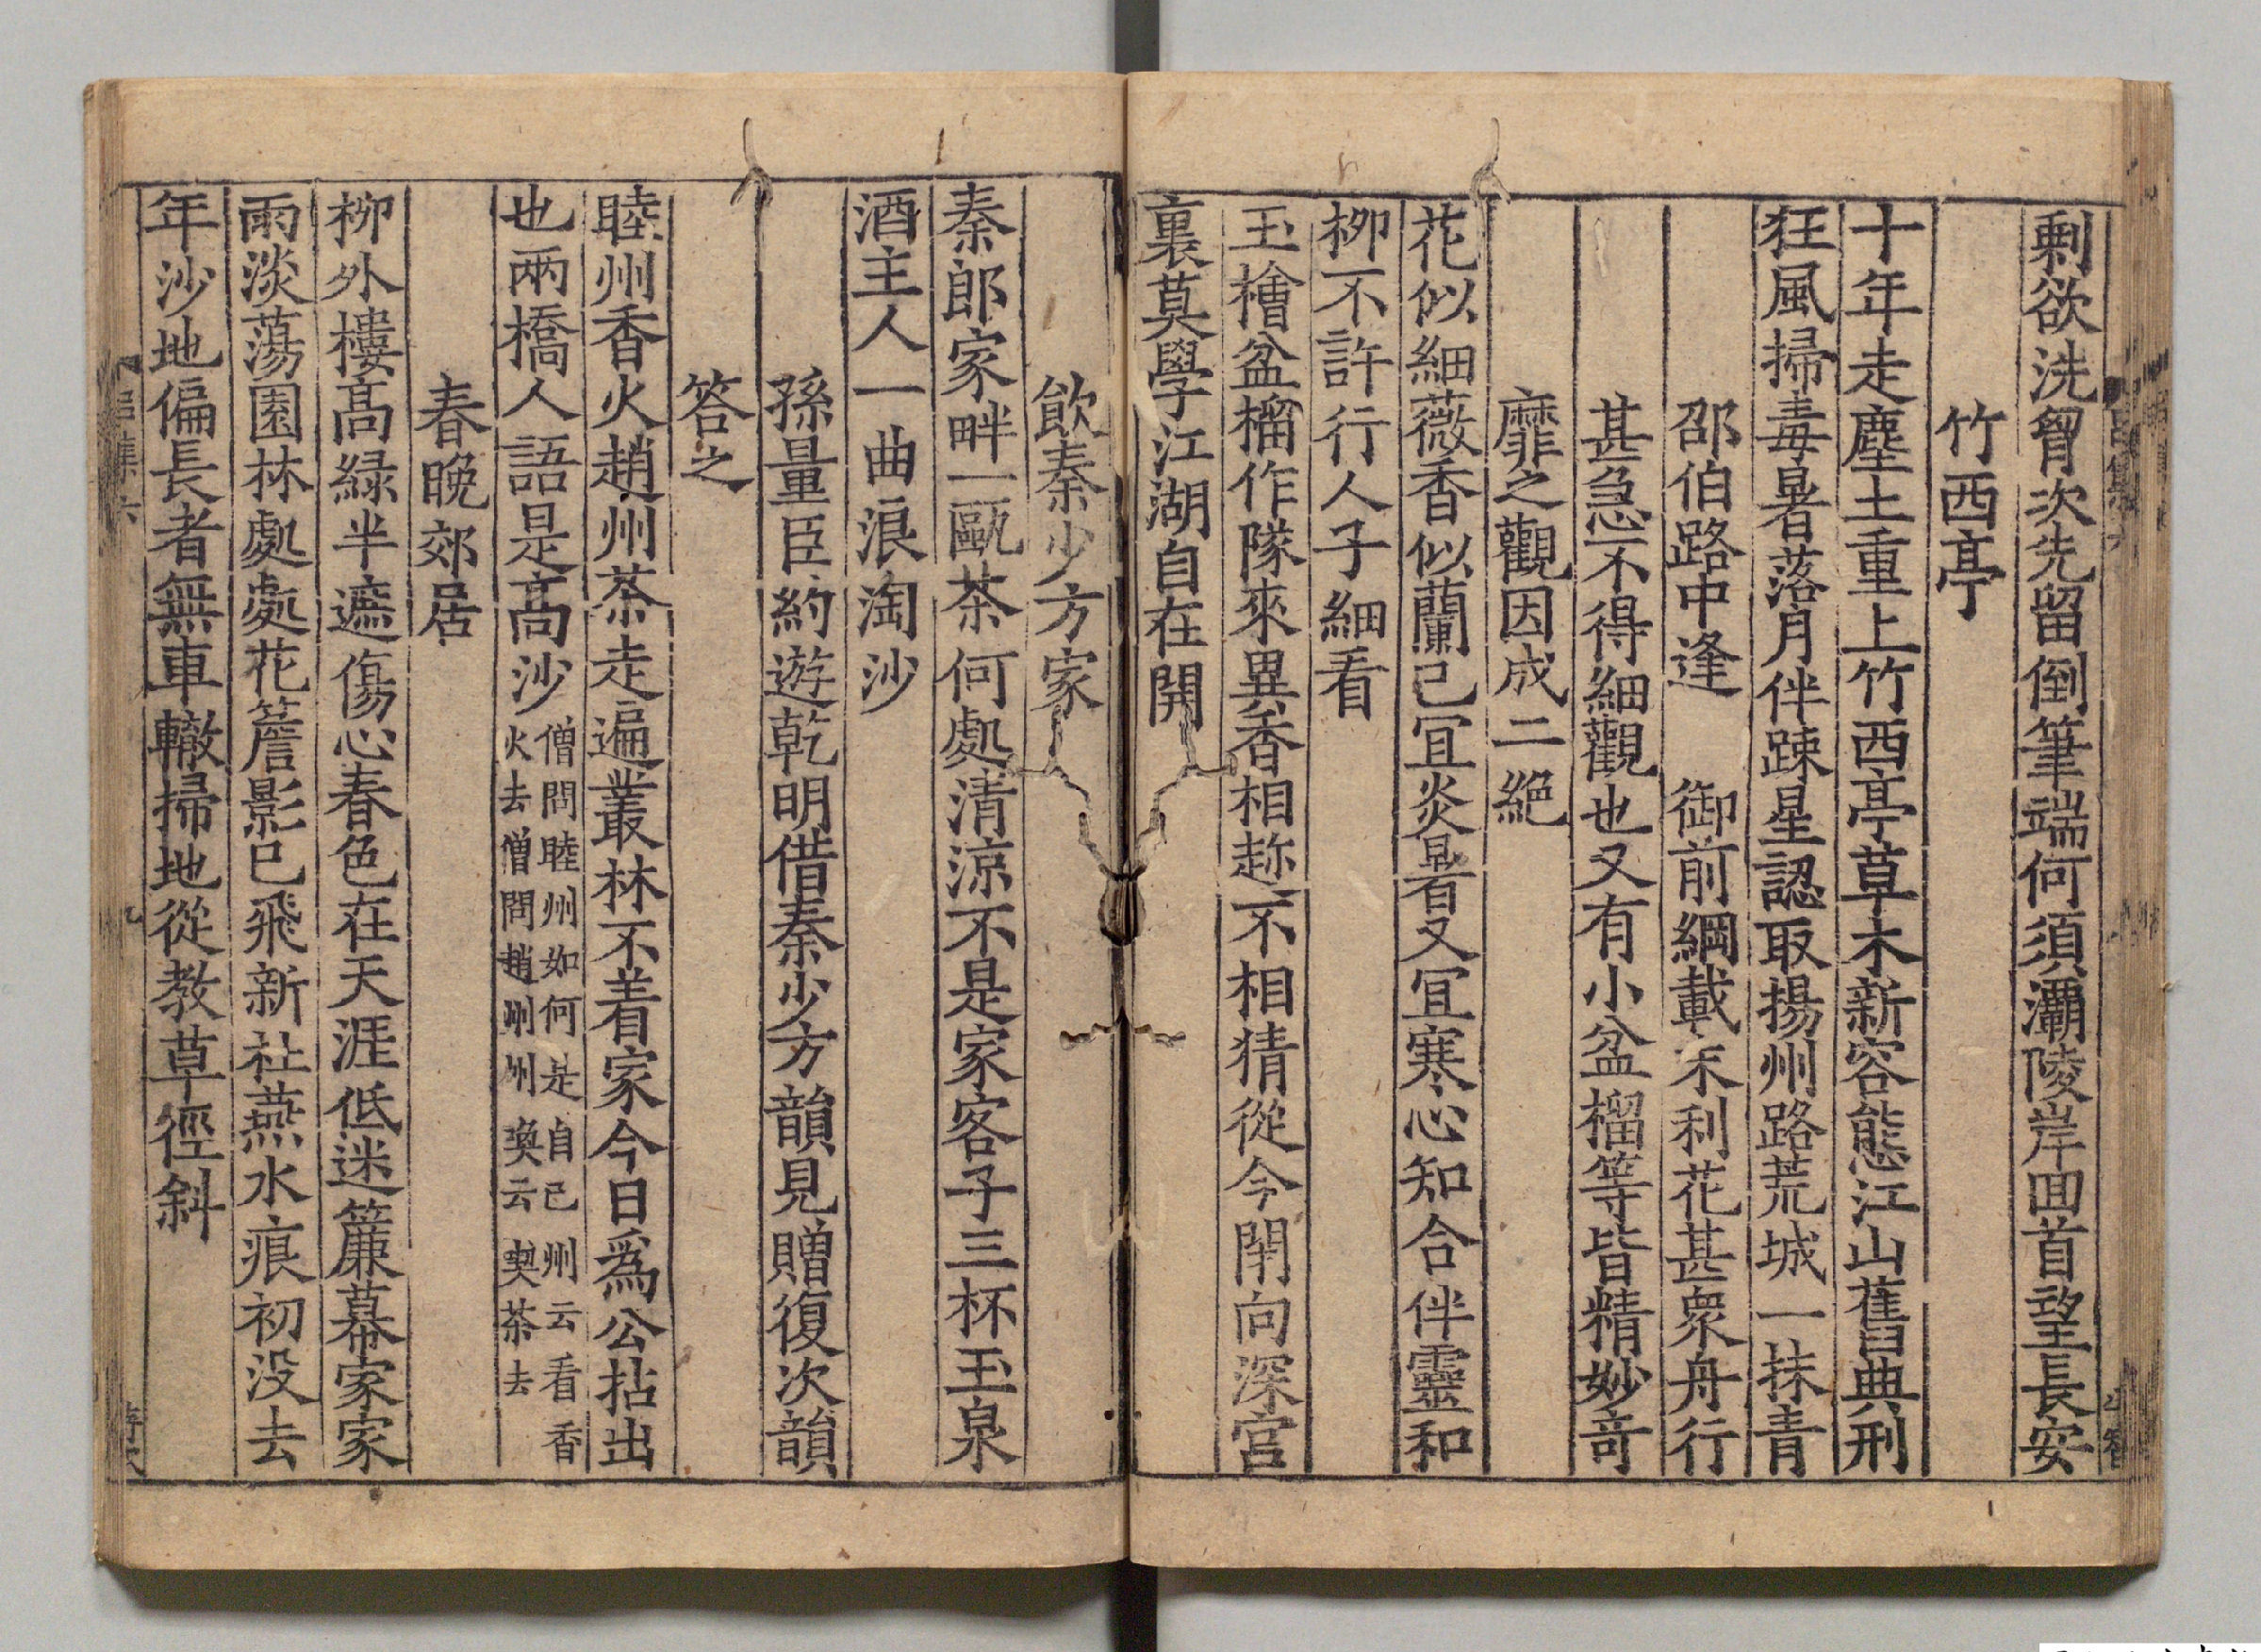 剰欲洗胷次先留倒筆端何須灞陵岸囬首望長安
竹西亭
十年走塵土重上竹西亭草木新容態江山舊典刑
狂風掃毒暑落月伴踈星認取揚州路荒城一抹青
邵伯路中逢　御前綱載末利花甚衆舟行
甚急不得細觀也又有小盆榴等皆精妙竒
靡之觀因成二絶
花似細薇香似蘭已冝炎暑又冝寒心知合伴靈和
栁不許行人子細看
玉檜盆榴作隊來異香相趂不相猜從今閉向深宫
裏莫學江湖自在開
飲秦少方家
秦郎家畔一甌茶何處清涼不是家客子三杯玉泉
酒主人一曲浪淘沙
孫量臣約遊乾明借秦少方韻見贈復次韻
答之
睦州香火趙州茶走遍叢林不着家今日爲公拈出
也兩橋人語是髙沙
僧問睦州如何是自己州云看香
火去僧問趙州州喫云喫茶去
春晩郊居
栁外樓髙緑半遮傷心春色在天涯低迷簾幕家家
雨淡蕩園林處處花簷影已飛新社燕水痕初没去
年沙地偏長者無車轍掃地從教草徑斜